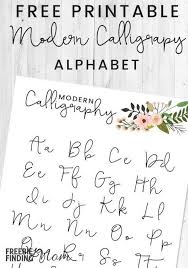 FREE PRINTABLE
Modern Calligrapy
ALPHABET
MODERN
Calligraphy
Aa Bb Cc Dd
Ee Ff Gg Hh
Ii Jj Kk Ll
Mm Nn Oo Pp
FREEBIE
FINDING